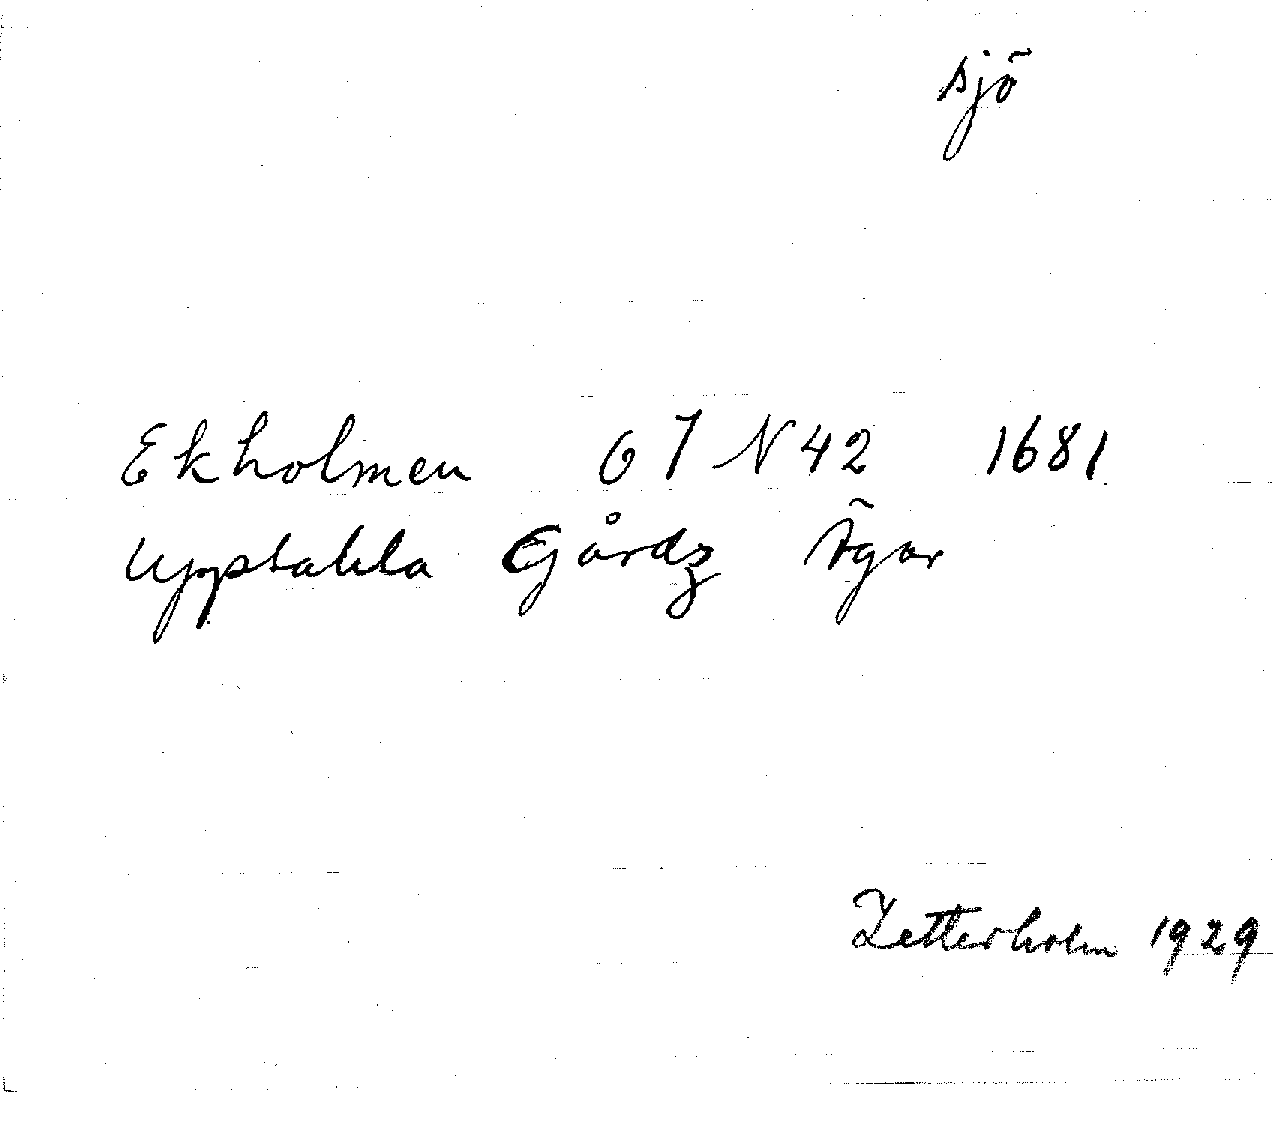 sjö
Ekholmen G 7 N 42 1681
Uppstahla Gårdz Ägor
Zetterholm 1929